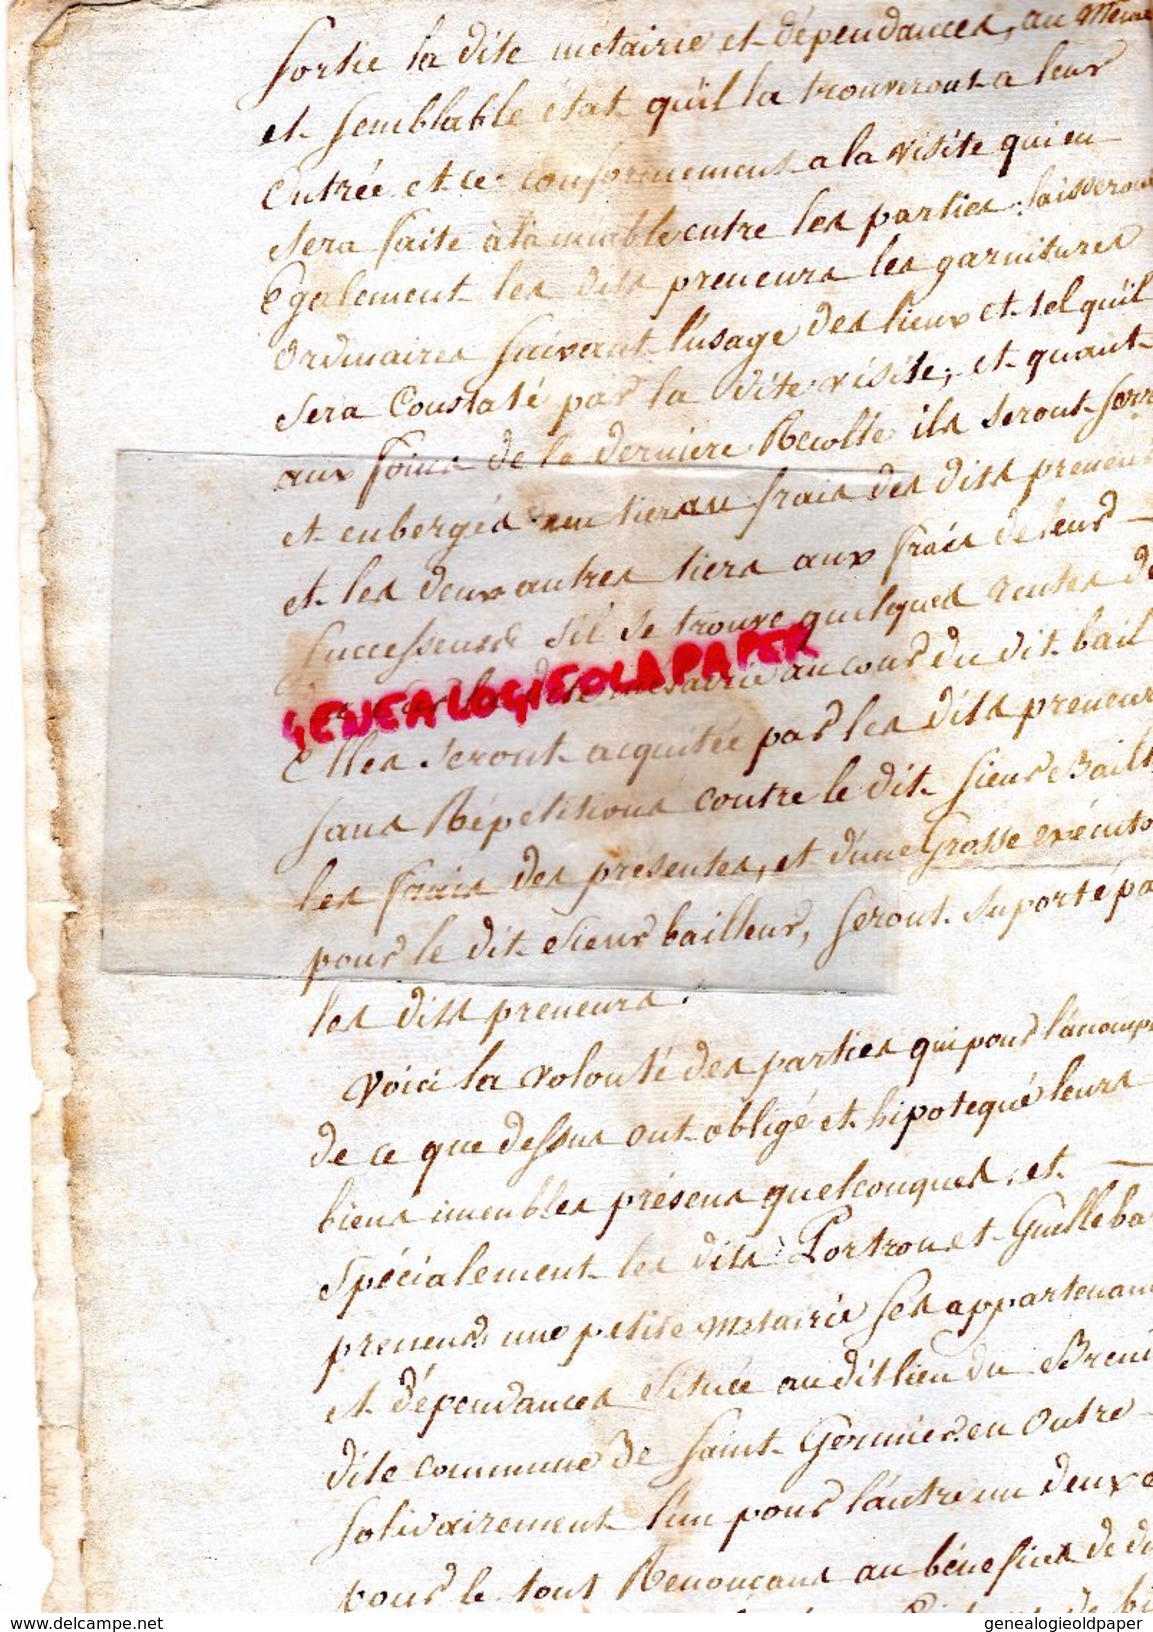 sortie la dite métairie et dépendances, au même
et semblable état quil la trouveront a leur
Entrée et ce conformement a la visite qui en
sera faite à lamiable entre les parties; laisseront
Egalement les dits preneurs les garnitures
ordinaires suivant l'usage des lieux et tel quil
sera Constaté par la dite visite; et quant
aux foins de la derniere Récolte ils seront
et enbergés un tier au frais des dits preneurs
et les deux autres tiers aux frais de leur
successeurs s'il se trouve quelques rentes
sur la dite métairie au cour du dit bail
Elles seront acquitée par les dits preneur
sans Répétitions contre le dit sieur Baill
les frais des présentes, et d'une Grosse exécuto
pour le dit sieur bailleur, seront suporté pa
les dits preneurs.
Voici la volonté des parties qui pour l'acomp
de ce que dessus ont obligé et hipotequé leurs
biens imeubles présens quelconques, et
spécialement les dits Portron et Guilleba
preneurs une petite métairie ses appartenan
et dépendances située au dit lieu du Breui
dite commune de saint Germier en outre
solidairement l'un pour l'autre un deux
pour le tout Renonçans au bénéfice de
GENEALOGIEOLDPAPER
delcampe.net
genealogieoldpaper